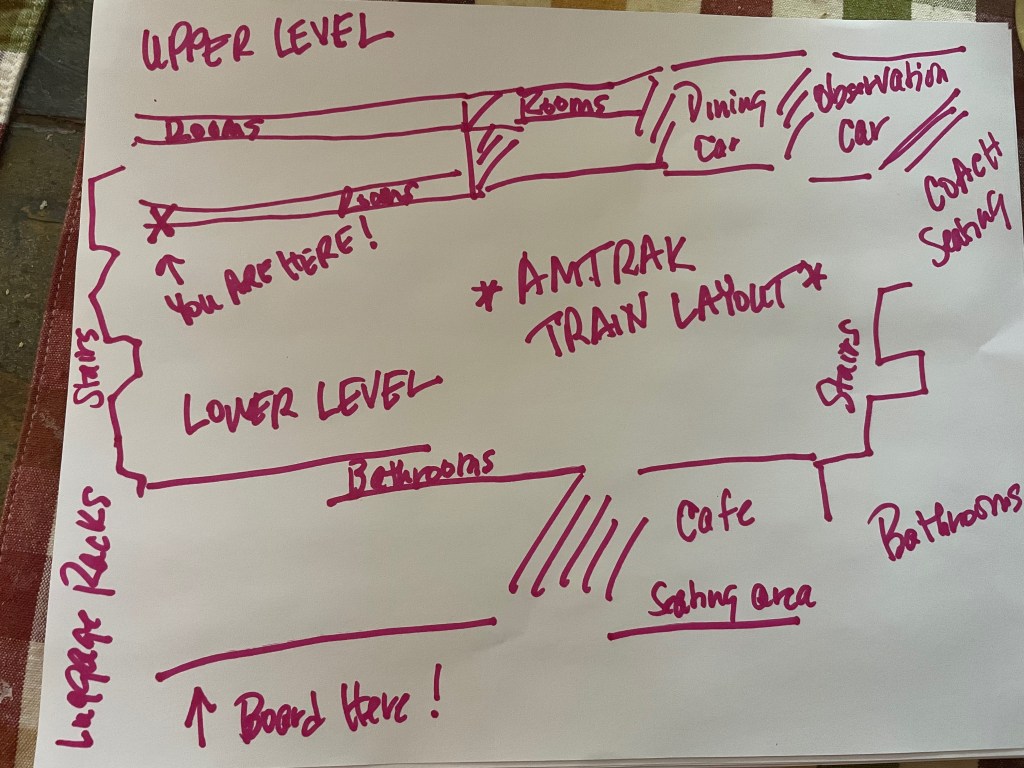 UPPER LEVEL
Rooms
Rooms
Dining
Car
Observation
Car
COACH
Seating
Rooms
YOU ARE HERE!
* AMTRAK
TRAIN LAYOUT *
Stairs
Stairs
LOWER LEVEL
Bathrooms
Cafe
Bathrooms
Seating area
Luggage Racks
Board Here!